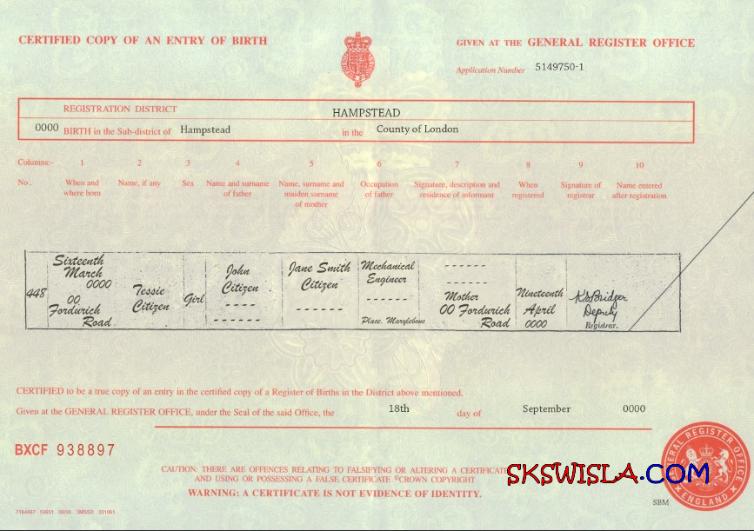 CERTIFIED COPY OF AN ENTRY OF BIRTH
GIVEN AT THE GENERAL REGISTER OFFICE
Application Number 5149750-1
REGISTRATION DISTRICT HAMPSTEAD
0000 BIRTH in the Sub-district of Hampstead in the County of London
Columns:- 1 2 3 4 5 6 7 8 9 10
No. When and where born Name, if any Sex Name and surname of father Name, surname and maiden surname of mother Occupation of father Signature, description and residence of informant When registered Signature of registrar Name entered after registration
448
Sixteenth
March
0000
00
Fordwich
Road
Tessie
Citizen
Girl
John
Citizen
- - - -
- - - - - -
Jane Smith
Citizen
- - - - - -
Mechanical
Engineer
- - - - - -
Place. Marylebone
- - - - - -
- - - - - -
Mother
00 Fordwich
Road
Nineteenth
April
0000
Bridger
Deputy
Registrar.
CERTIFIED to be a true copy of an entry in the certified copy of a Register of Births in the District above mentioned.
Given at the GENERAL REGISTER OFFICE, under the Seal of the said Office, the 18th day of September 0000
BXCF 938897
CAUTION: THERE ARE OFFENCES RELATING TO FALSIFYING OR ALTERING A CERTIFICATE
AND USING OR POSSESSING A FALSE CERTIFICATE ©CROWN COPYRIGHT
WARNING: A CERTIFICATE IS NOT EVIDENCE OF IDENTITY.
SKSWISLA.COM
SBM
GENERAL REGISTER OFFICE
ENGLAND